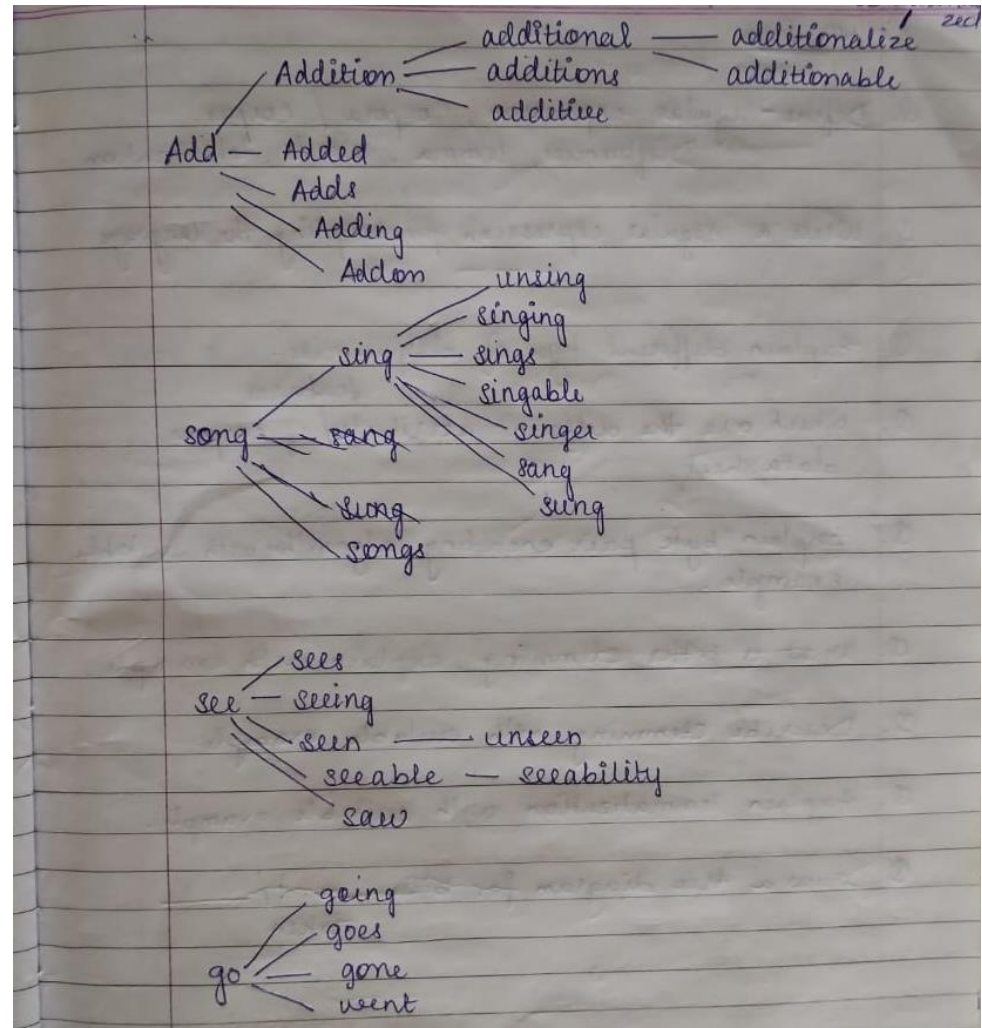 zed
additional — additionalize
Addition — additions additionable
additive
Add — Added
Adds
Adding
Addon
unsing
singing
sing — sings
singable
song — sang singer
sang
sung sung
songs
sees
see — seeing
seen — unseen
seeable — seeability
saw
going
goes
go — gone
went